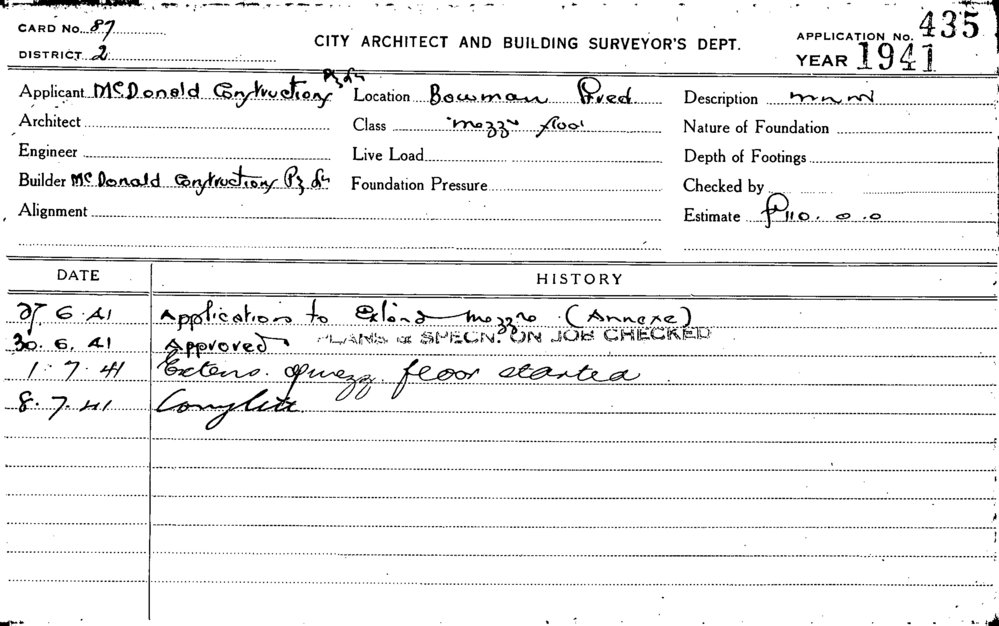 CARD No. 87
DISTRICT 2
CITY ARCHITECT AND BUILDING SURVEYOR'S DEPT.
APPLICATION No. 435
YEAR 1941
Applicant McDonald Constructions
Location Bowman
Description
Architect
Class mezz floor
Nature of Foundation
Engineer
Live Load
Depth of Footings
Builder McDonald Constructions
Foundation Pressure
Checked by
Alignment
Estimate £110.0.0
DATE
HISTORY
27 6 41 Applications to Extend mezz (Annexe)
30. 6. 41 Approved PLANS & SPECN. ON JOB CHECKED
1. 7. 41 Extens. of mezz. floor started
8. 7. 41 Complete